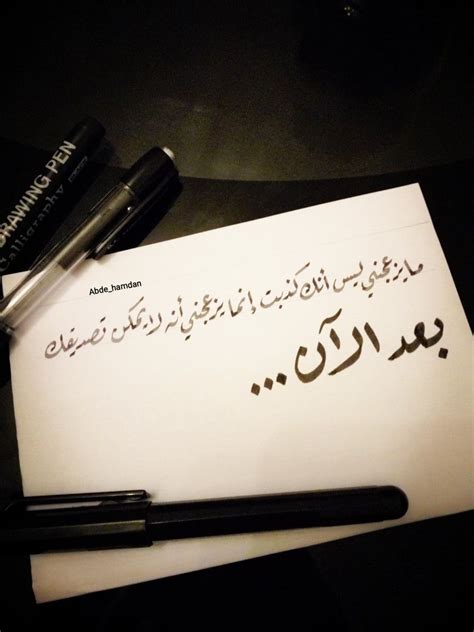 DRAWING PEN
Calligraphy
Abde_hamdan
مايزعجني ليس أنك كذبت إنما يزعجني أنه لا يمكن تصديقك
بعد الآن ...